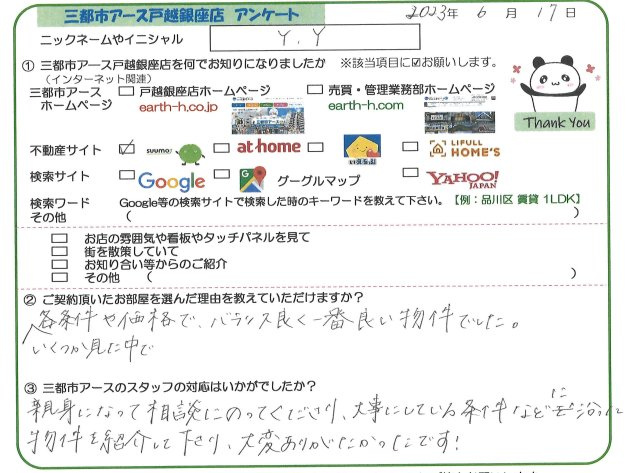 三都市アース戸越銀座店 アンケート
2023年 6月 17日
ニックネームやイニシャル
Y.Y
① 三都市アース戸越銀座店を何でお知りになりましたか ※該当項目に☑お願いします。
（インターネット関連）
三都市アース
ホームページ
□ 戸越銀座店ホームページ
earth-h.co.jp
□ 売買・管理業務部ホームページ
earth-h.com
Thank You
不動産サイト ☑ suumo □ at home □ いえらぶ □ LIFULL HOME'S
検索サイト □ Google □ グーグルマップ □ YAHOO! JAPAN
検索ワード Google等の検索サイトで検索した時のキーワードを教えて下さい。【例：品川区 賃貸 1LDK】
その他 （ ）
□ お店の雰囲気や看板やタッチパネルを見て
□ 街を散策していて
□ お知り合い等からのご紹介
□ その他 （ ）
② ご契約頂いたお部屋を選んだ理由を教えていただけますか？
各条件や価格で、バランス良く一番良い物件でした。
いくつか見た中で
③ 三都市アースのスタッフの対応はいかがでしたか？
親身になって相談にのってくださり、大事にしている条件などに沿った
物件を紹介して下さり、大変ありがたかったです！